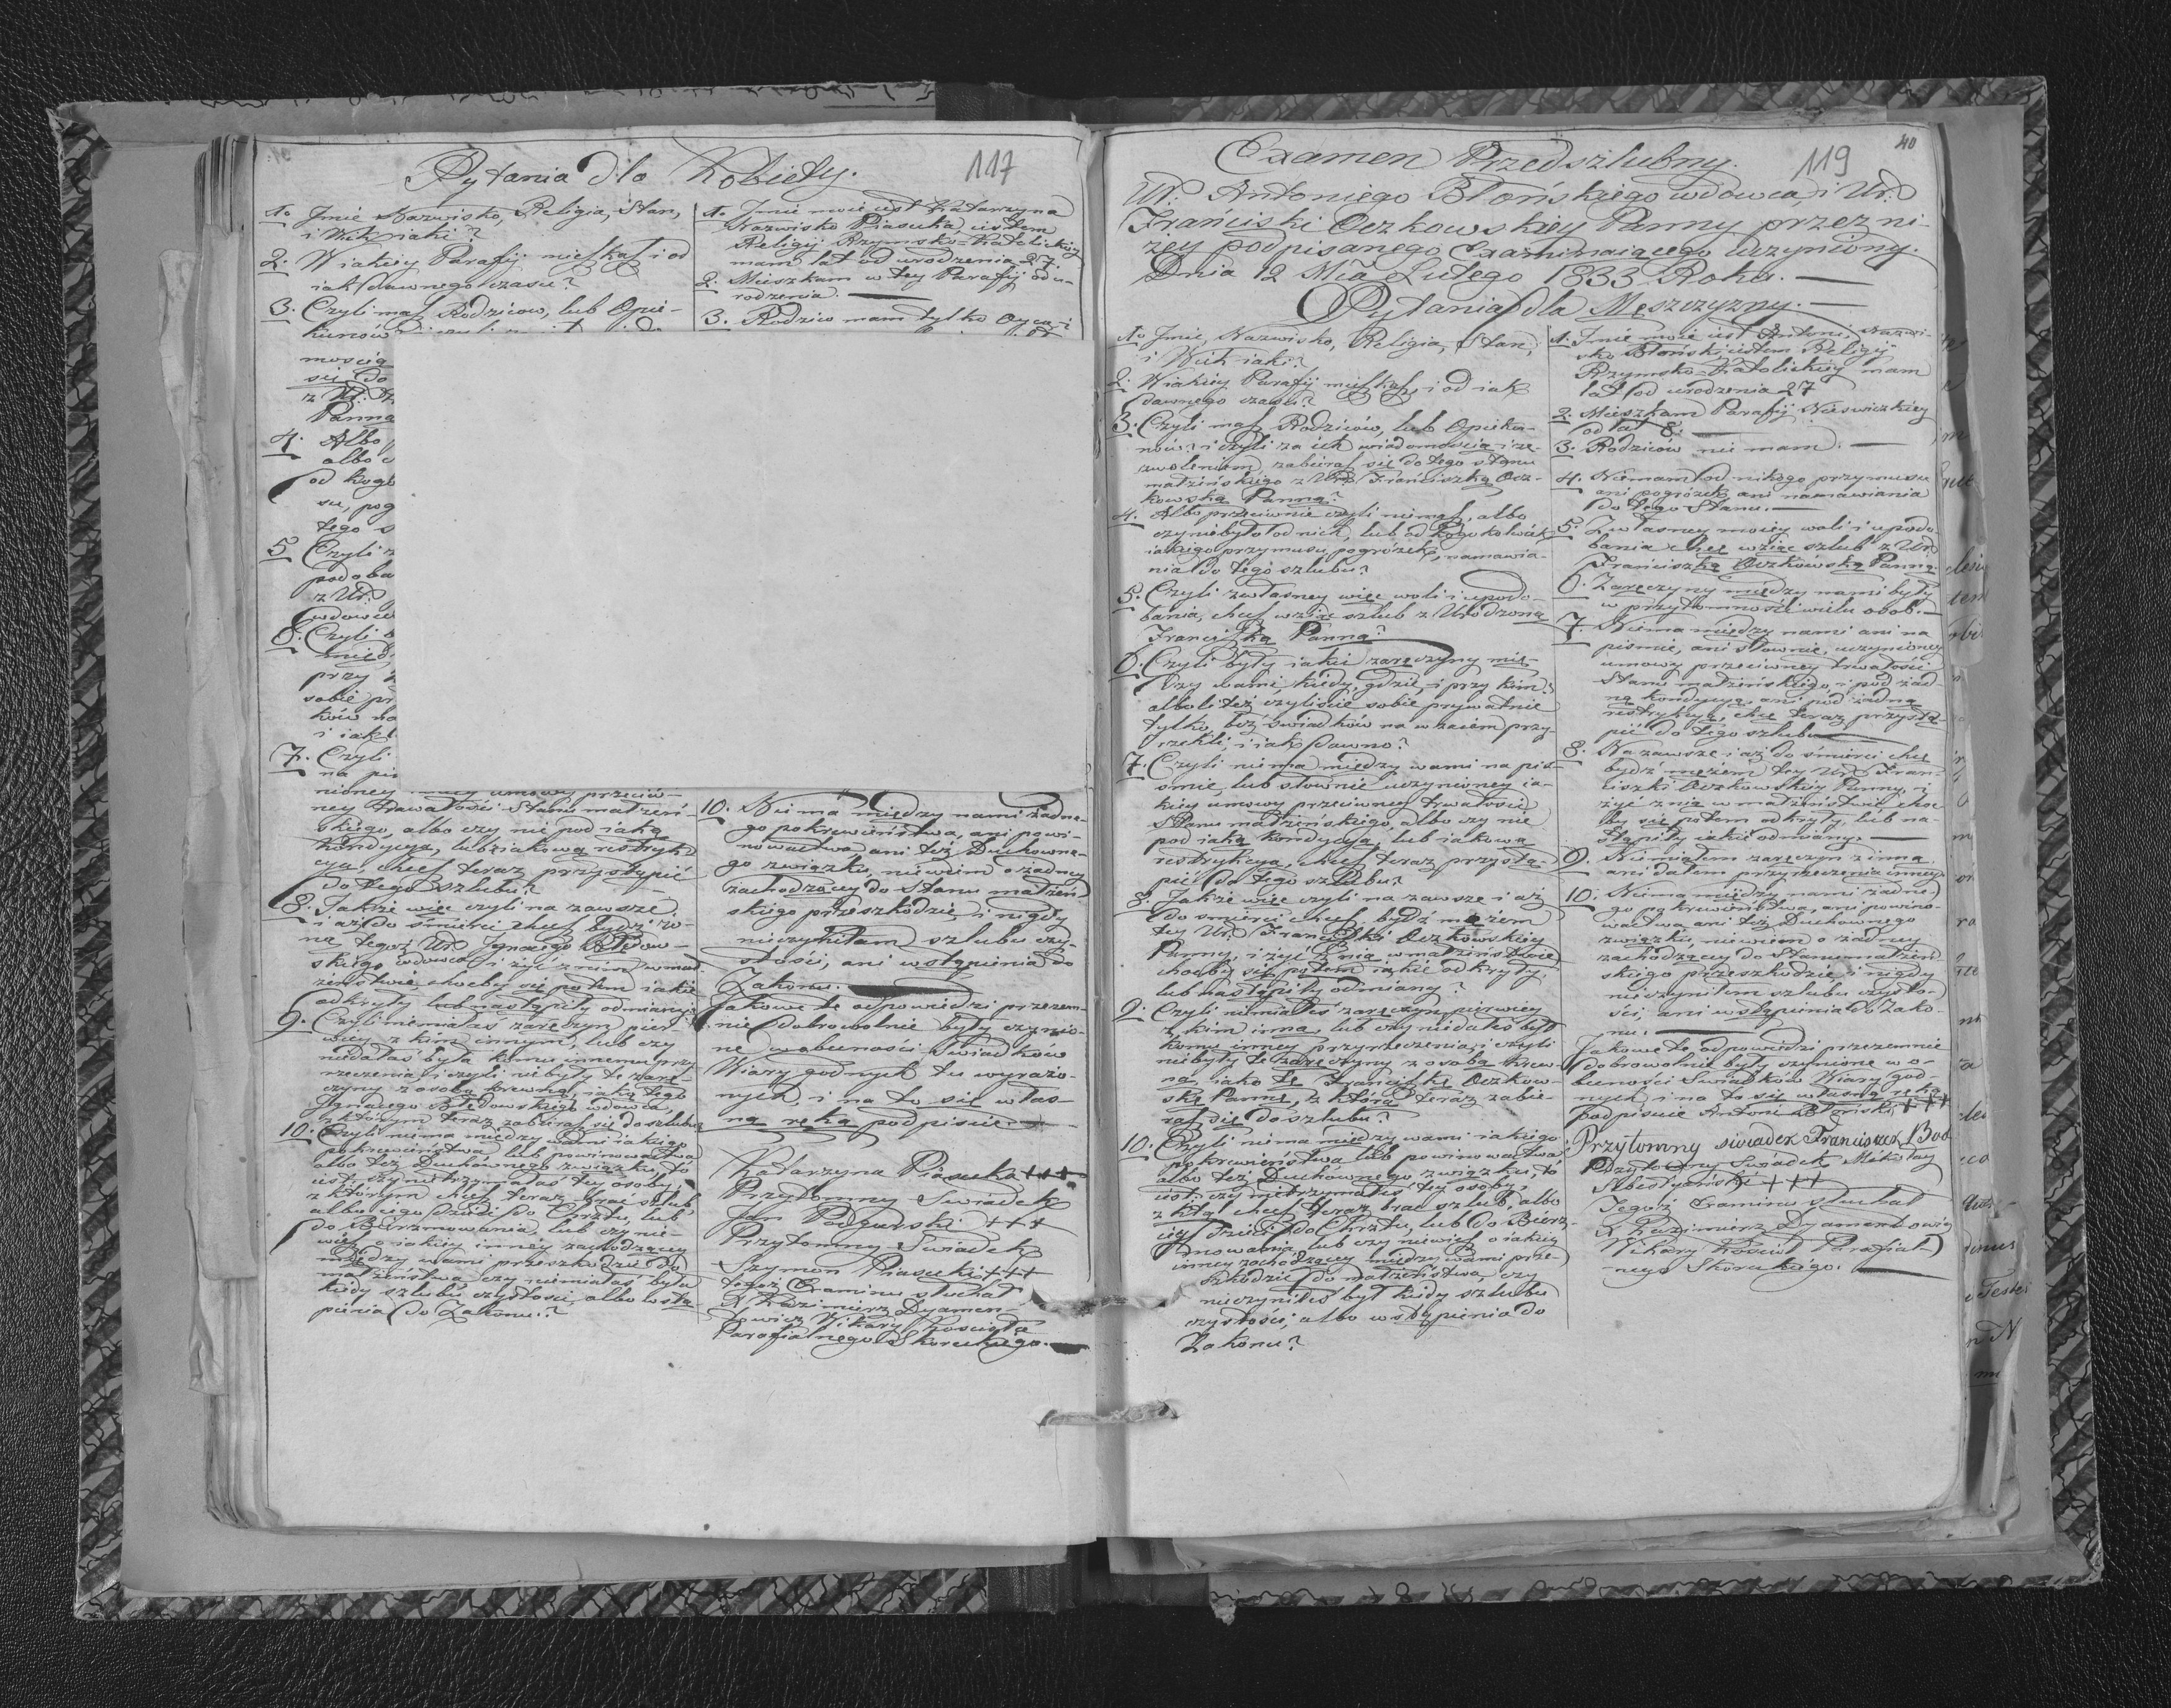 Pytania dla Kobiety.
117
1. Jmie Nazwisko, Religia, Stan,
i Wiek iaki?
2. W iakiey Parafij mieszkasz i od
iak dawnego czasu?
3. Czyli masz Rodzicow, lub Opie-
kunów
mością
się do
z Ur.
Panna
4. Albo
albo c
od kogo
su, pog
tego s
5. Czyli z
podoba
z Ur.
wdowce
6. Czyli b
międ
przy
sobie pr
ków na
i iak
7. Czyli
na pis
nioney umowy przeciw-
ney trwałości Stanu małżeń-
skiego, albo czy nie pod iaką
kondycyą, lub iakową restryk-
cyą, chcesz teraz przystąpić
do tego szlubu?
8. Jakże więc czyli na zawsze
i aż do śmierci chcesz bydź żo-
ną tegoż Ur. Jgnacego Błędow-
skiego wdowca i żyć z nim w mał-
żeństwie, choćby się potem iakie
odkryły lub nastąpiły odmiany?
9. Czyli niemiałaś zaręczyn pier-
wiey z kim innym, lub czy
niedałaś była komu innemu przy-
rzeczenia, i czyli niebyły te zarę-
czyny z osobą krewną, iaką tego
Jgnacego Błędowskiego wdowca,
z którym teraz zabierasz się do szlubu?
10. Czyli niema między wami iakiego
pokrewieństwa lub powinowactwa
albo też Duchownego związku, to
iest, czy nietrzymałaś tey osoby,
z którym chcesz teraz brać szlub,
albo iego dzieci do Chrztu, lub
do Bierzmowania, lub czy nie-
wiesz o iakiey inney zachodzącey
między wami przeszkodzie do
małżeństwa, czy niemiałaś była
kiedy szlubu czystości, albo wstą-
pienia do Zakonu?
1. Jmie moie iest Katarzyna
Nazwisko Piasecka, iestem
Religij Rzymsko-Katolickiey
mam lat od urodzenia 27.
2. Mieszkam w tey Parafij od u-
rodzenia.
3. Rodziców mam tylko Oyca, i
10. Niema między nami żadne-
go pokrewieństwa, ani powi-
nowactwa ani też Duchowne-
go związku, niewiem o żadney
zachodzącey do Stanu małżeń-
skiego przeszkodzie, i nigdy
nieczyniłam szlubu czy-
stości, ani wstąpienia do
Zakonu.
Jakowe te odpowiedzi przezem-
nie dobrowolnie były czynio-
ne w obecności Swiadków
Wiary godnych tu wyrażo-
nych, i na to się włas-
ną ręką podpisuię
Katarzyna Piasecka +++
Przytomny Swiadek
Jan Podgurski +++
Przytomny Swiadek
Szymon Piasecki +++
tegoż Examinu słuchał
X Kazimierz Dyamen-
towicz Wikary Kościoła
Parafialnego Skoreckiego.
40
119
Examen Przedszlubny.
Ur. Antoniego Błońskiego wdowca, i Ur.
Franciszki Oczkowskiey Panny przez ni-
żey podpisanego Examinuiącego uczyniony.
Dnia 12 Mca Lutego 1833 Roku.
Pytania dla Męszczyzny.
1. Jmie, Nazwisko, Religia, Stan,
i Wiek iaki?
2. W iakiey Parafij mieszkasz, i od iak
dawnego czasu?
3. Czyli masz Rodziców, lub Opieku-
nów? i czyli za ich wiadomością i ze-
zwoleniem zabierasz się do tego stanu
małżeńskiego z Ur. Franciszką Ocz-
kowską Panną?
4. Albo przeciwnie czyli niemasz, albo
czy niebyło od nich, lub od kogo kolwiek
iakiego przymusu, pogróżek, namawia-
nia do tego szlubu?
5. Czyli z własney więc woli i upodo-
bania, chcesz wziąć szlub z Urodzoną
Franciszką Panną?
6. Czyli były iakie zaręczyny mię-
dzy wami, kiedy, gdzie, i przy kim?
albo li też czyliście sobie prywatnie
tylko, bez świadków na wzaiem przy-
rzekli, i iak dawno?
7. Czyli niema między wami na piś-
śmie, lub słownie uczynioney ia-
kiey umowy przeciwney trwałości
Stanu małżeńskiego, albo czy nie
pod iaką kondycyą, lub iakową
restrykcyą, chcesz teraz przystą-
pić do tego szlubu?
8. Jakże więc czyli na zawsze i aż
do śmierci chcesz bydź mężem
tey Ur. Franciszki Oczkowskiey
Panny, i żyć z nią w małżeństwie
choćby się potem iakie odkryły,
lub nastąpiły odmiany?
9. Czyli niemiałeś zaręczyn pierwiey
z kim inną, lub czy niedałeś był
komu inney przyrzeczenia, i czyli
niebyły te zaręczyny z osobą krew-
ną, iako tę Franciszkę Oczkow-
ską Pannę, z którą teraz zabie-
rasz się do szlubu?
10. Czyli niema między wami iakiego
pokrewieństwa lub powinowactwa
albo też Duchownego związku, to
iest: czy nietrzymałeś tey osoby,
z którą chcesz teraz brać szlub, albo
iey dzieci do Chrztu, lub do Bierz-
mowania, lub czy niewiesz o iakiey
inney zachodzącey między wami prze-
szkodzie do małżeństwa, czy
nieczyniłeś był kiedy szlubu
czystości, albo wstąpienia do
Zakonu?
1. Jmie moie iest Antoni, Nazwi-
sko Błoński, iestem Religij
Rzymsko-Katolickiey mam
lat od urodzenia 27
2. Mieszkam Parafij Nieswiczkiey
od lat 8.
3. Rodziców nie mam.
4. Niemam od nikogo przymusu
ani pogróżek, ani namawiania
do tego Stanu.
5. Z własney moiey woli i upodo-
bania chcę wziąć szlub z Ur.
Franciszką Oczkowską Panną.
6. Zaręczyny między nami były
w przytomności wielu osob.
7. Niema między nami ani na
pismie, ani słownie, uczynioney
umowy przeciwney trwałości
Stanu małżeńskiego, i pod żad-
ną kondycyą, ani pod żadną
restrykcyą, chcę teraz przystą-
pić do tego szlubu
8. Na zawsze i aż do śmierci chcę
bydź mężem tey Ur. Fran-
ciszki Oczkowskiey Panny, i
żyć z nią w małżeństwie, choć
by się potem odkryły, lub na-
stąpiły iakie odmiany.
9. Niemiałem zaręczyn z inną,
ani dałem przyrzeczenia inney.
10. Niema między nami żadne-
go pokrewieństwa, ani powino-
wactwa, ani też Duchownego
związku, niewiem o żadney
zachodzącey do Stanu małżeń-
skiego przeszkodzie, i nigdy
nieczyniłem szlubu czysto-
ści, ani wstąpienia do Zako-
nu.
Jakowe te odpowiedzi przezemnie
dobrowolnie były czynione w o-
becności Swiadków Wiary god-
nych i na to się własną ręką
podpisuię Antoni Błoński +++
Przytomny swiadek Franciszek
Przytomny Swiadek Mikołay
+++
Tegoż Examinu słuchał
X Kazimierz Dyamentowicz
Wikary Kościoła Parafial-
nego Skoreckiego.